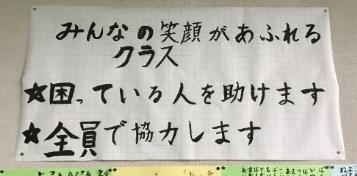 みんなの笑顔があふれる
クラス
★困っている人を助けます
★全員で協力します